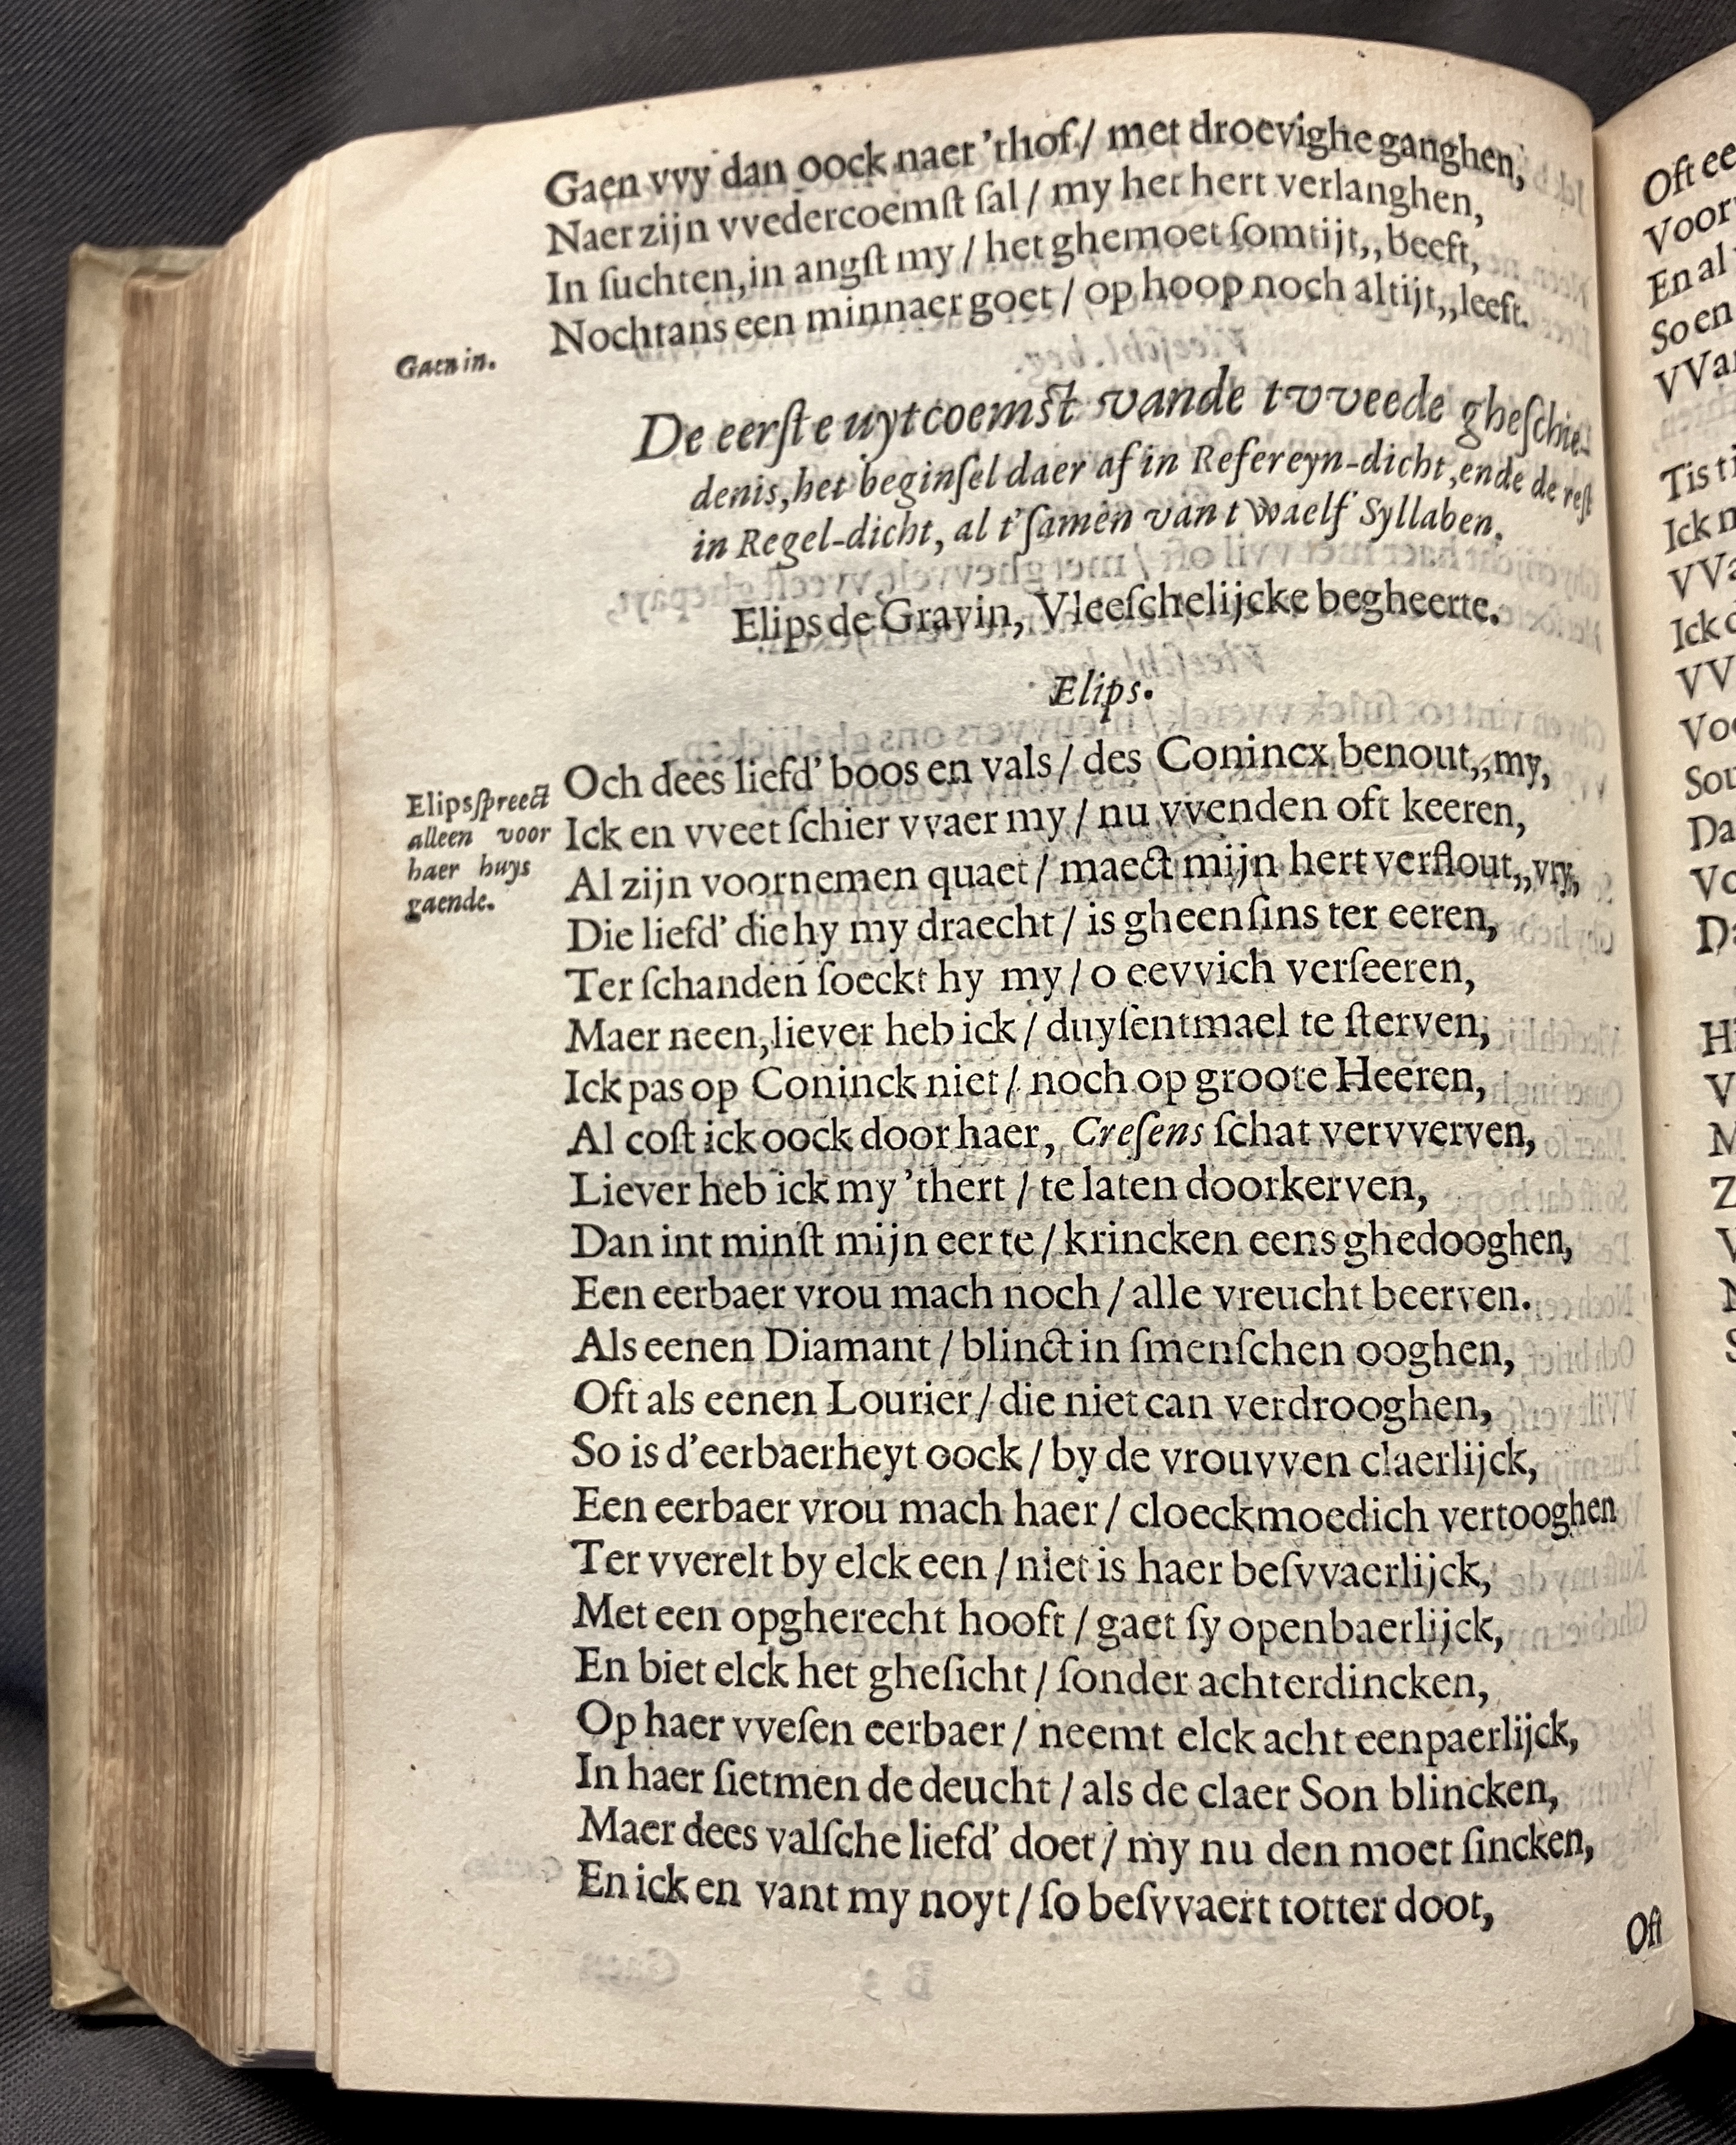 Gaen vvy dan oock naer 'thof / met droevighe ganghen,
Naer zijn vvedercoemſt ſal / my het hert verlanghen,
In ſuchten, in angſt my / het ghemoet ſomtijt,, beeft,
Nochtans een minnaer goet / op hoop noch altijt,, leeft.
Gaen in.
De eerſte uytcoemſt vande tvveede gheſchie-
denis, het beginſel daer af in Refereyn-dicht, ende de reſt
in Regel-dicht, al t'ſamen van twaelf Syllaben.
Elips de Gravin, Vleeſchelijcke begheerte.
Elips.
Elips ſpreect
alleen voor
haer huys
gaende.
Och dees liefd' boos en vals / des Conincx benout,, my,
Ick en vveet ſchier vvaer my / nu vvenden oft keeren,
Al zijn voornemen quaet / maect mijn hert verflout,, vry,
Die liefd' die hy my draecht / is gheenſins ter eeren,
Ter ſchanden ſoeckt hy my / o eevvich verſeeren,
Maer neen, liever heb ick / duyſentmael te ſterven,
Ick pas op Coninck niet / noch op groote Heeren,
Al coſt ick oock door haer, Creſens ſchat vervverven,
Liever heb ick my 'thert / te laten doorkerven,
Dan int minſt mijn eer te / krincken eens ghedooghen,
Een eerbaer vrou mach noch / alle vreucht beerven.
Als eenen Diamant / blinct in ſmenſchen ooghen,
Oft als eenen Lourier / die niet can verdrooghen,
So is d'eerbaerheyt oock / by de vrouvven claerlijck,
Een eerbaer vrou mach haer / cloeckmoedich vertooghen
Ter vverelt by elck een / niet is haer beſvvaerlijck,
Met een opgherecht hooft / gaet ſy openbaerlijck,
En biet elck het gheſicht / ſonder achterdincken,
Op haer vveſen eerbaer / neemt elck acht eenpaerlijck,
In haer ſietmen de deucht / als de claer Son blincken,
Maer dees valſche liefd' doet / my nu den moet ſincken,
En ick en vant my noyt / ſo beſvvaert totter doot,
Oft
Oft
Voor
En al
So en
Tis
Ick
Ick